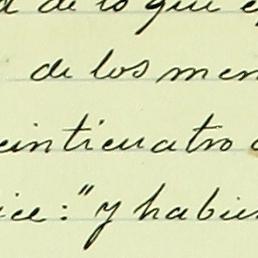 d de lo que e
de los men
einticuatro
ice: "y habie